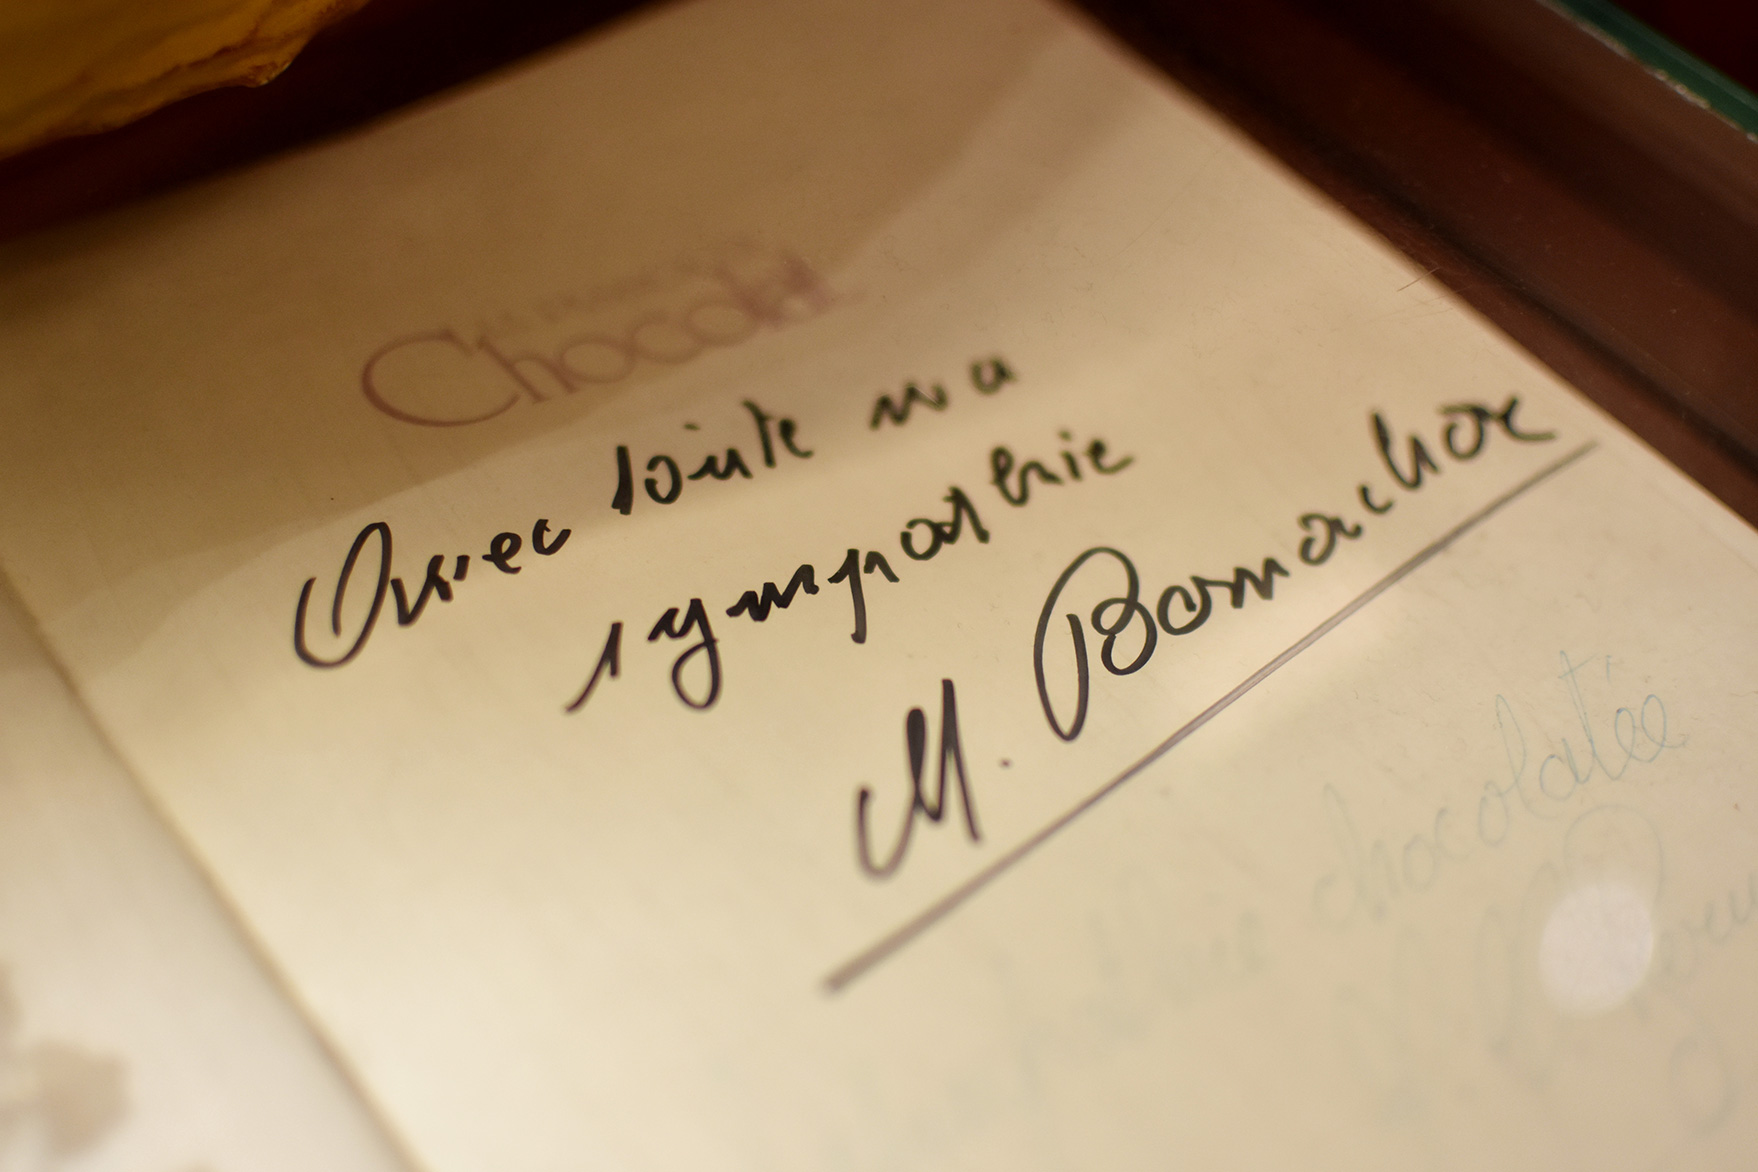 Chocolat
Avec toute ma
sympathie
M. Bernachon
chocolatée